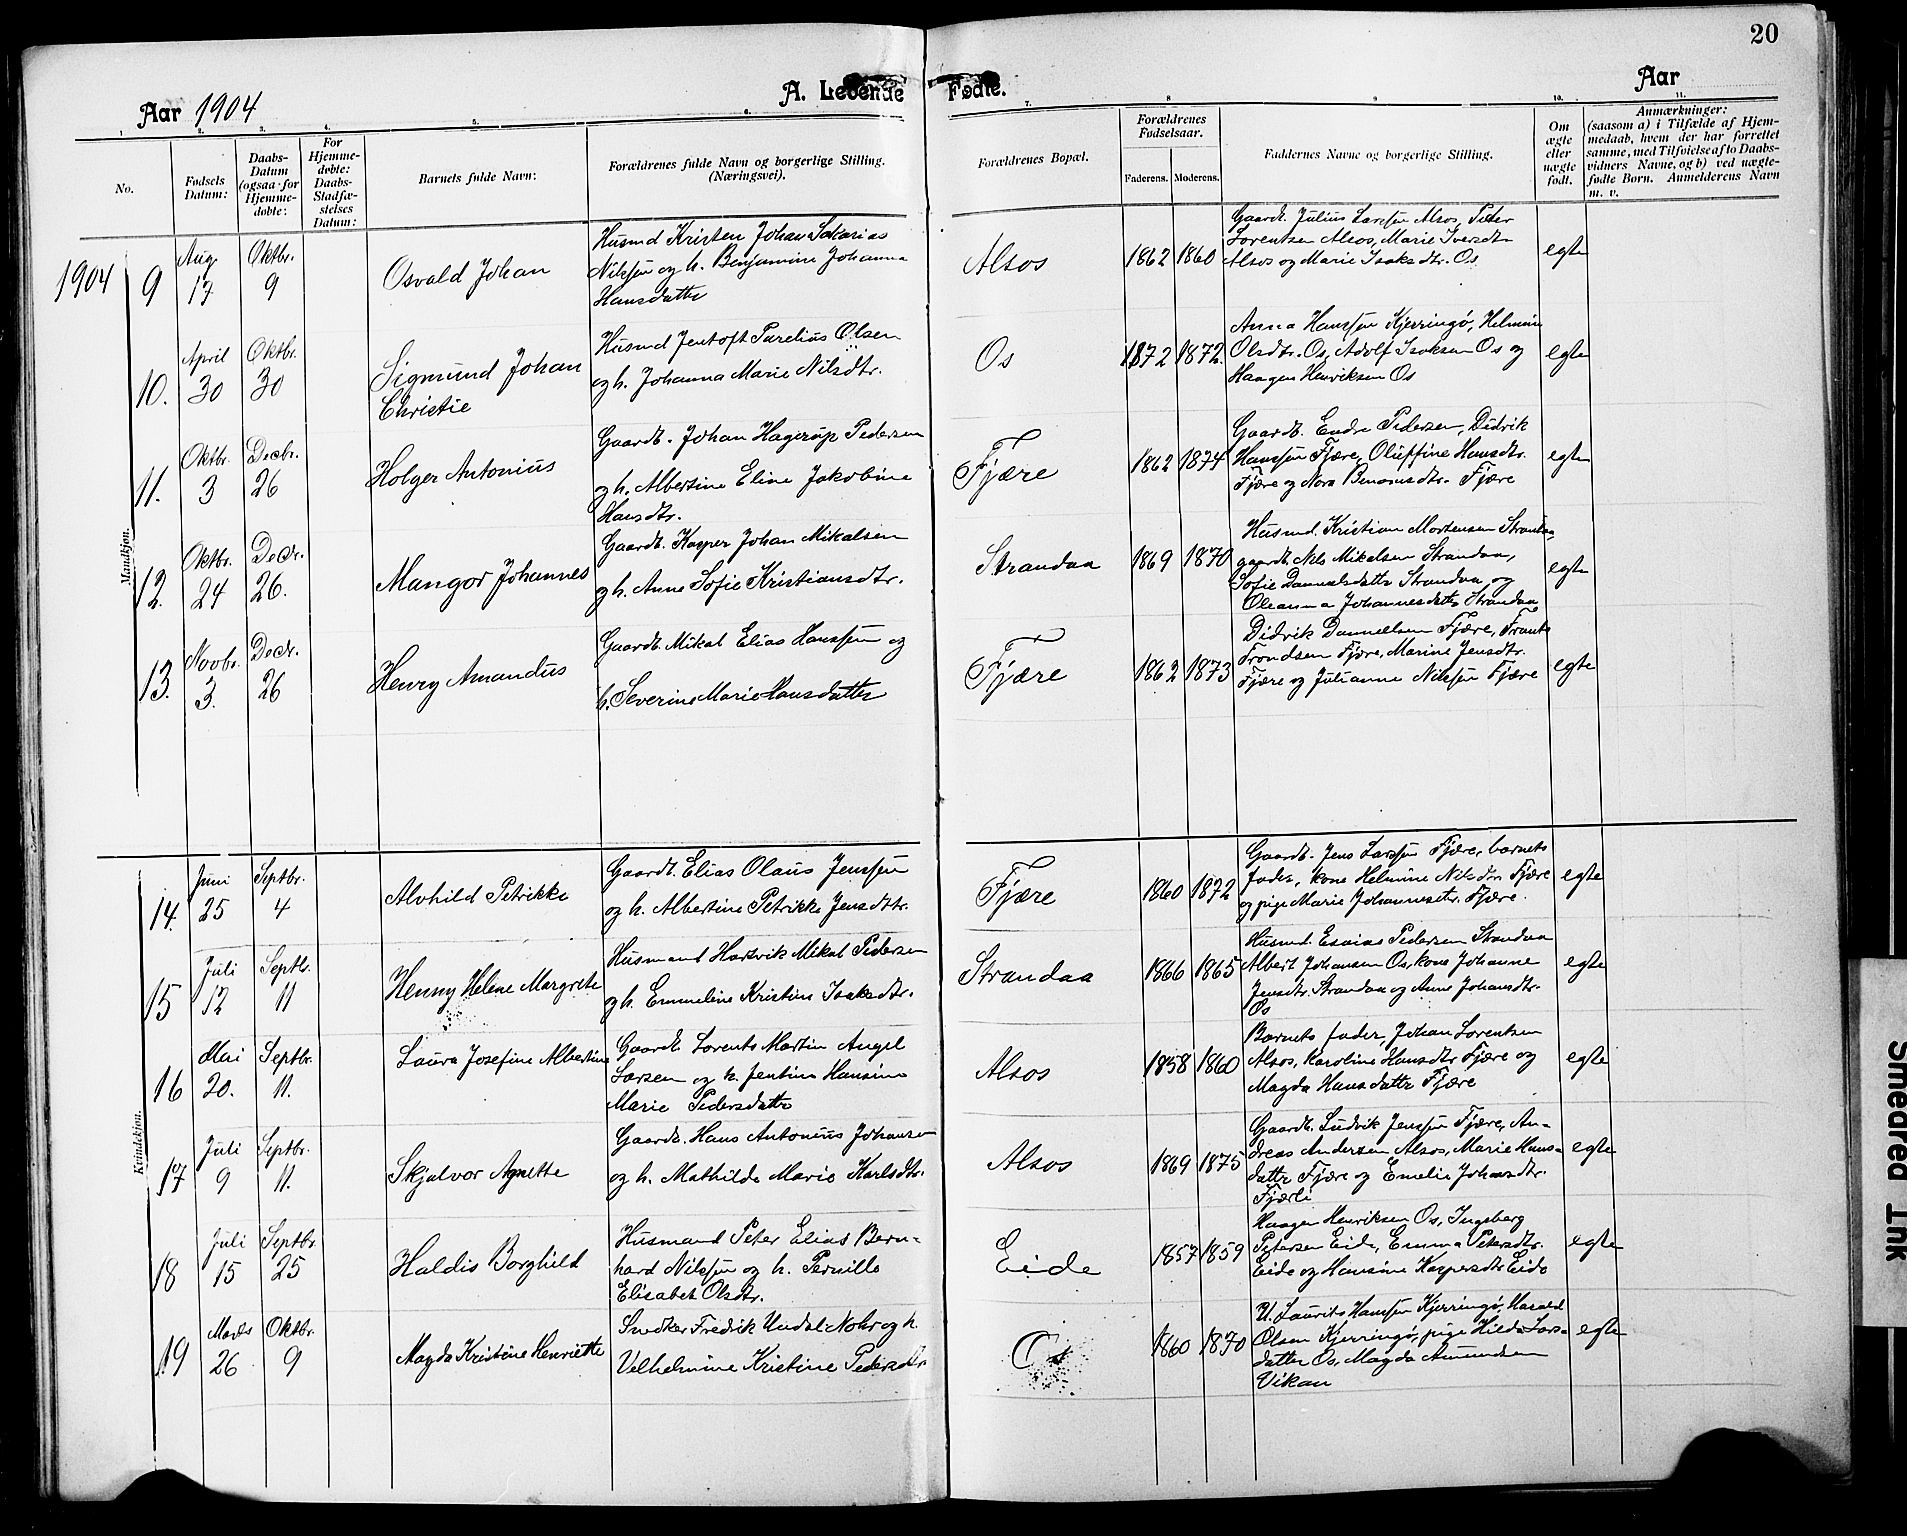 20
Aar 1904
A. Levende Fødte.
Aar
1. 2. 3. 4. 5. 6. 7. 8 9 10. 11.
No.
Fødsels Datum:
Daabs-Datum (ogsaa for Hjemmedøbte:
For Hjemmedøbte: Daabs-Stadfæstelses Datum:
Barnets fulde Navn:
Forældrenes fulde Navn og borgerlige Stilling. (Næringsvei).
Forældrenes Bopæl.
Forældrenes Fødselsaar.
Faderens. Moderens.
Faddernes Navne og borgerlige Stilling.
Om ægte eller uægte født.
Anmærkninger:
(saasom a) i Tilfælde af Hjemmedaab, hvem der har forrettet samme, med Tilføielse af to Daabsvidners Navne, og b) ved uægtefødte Børn. Anmelderens Navn m. v.
Mandkjøn.
1904 9 Aug. 17 Oktbr. 9
Osvald Johan
Husmd Kristen Johan Sakarias
Nilssen og h. Benjamine Johanna
Hansdatter
Alsos 1862 1860
Gaardt. Julius Larssen Alsos, Peter
Lorentsen Alsos, Marie Iversdtr
Alsos og Marie Isaksdtr. Os
egte
10. April 30 Oktbr. 30
Sigmund Johan
Christie
Husmd Jentoft Parelius Olsen
og h. Johanna Marie Nilsdtr.
Os 1872 1872.
Anna Hanssen Kjerringø, Helmine
Olsdtr. Os, Adolf Isaksen Os og
Haagen Henriksen Os
egte
11. Oktbr. 3 Decbr. 26
Holger Antonius
Gaardt. Johan Hagerup Pedersen
og h. Albertine Eline Jakobine
Hansdtr.
Fjære 1862 1874
Gaardt. Endre Pedersen, Didrik
Hanssen Fjære, Oluffine Hansdtr.
Fjære og Nora Benonisdtr. Fjære
egte
12. Oktbr. 24 Decbr. 26.
Mangor Johannes
Gaardt. Kasper Johan Mikalsen
og h. Anne Sofie Kristiansdtr.
Strandaa 1869 1870
Husmd. Kristian Mortensen Strandaa
gaardt. Nils Mikalsen Strandaa,
Sofie Danielsdatter Strandaa og
Oleanna Johannesdatter Strandaa
egte
13. Novbr. 3. Decbr. 26
Henry Amandus
Gaardt. Mikal Elias Hanssen og
h. Severine Marie Hansdatter
Fjære 1862 1873
Didrik Danielsen Fjære, Frants
Trondsen Fjære, Marine Jensdtr.
Fjære og Julianne Nilssen Fjære
egte
Kvindekjøn.
14. Juni 25 Septbr. 4
Alvhild Petrikke
Gaardt. Elias Olaus Jenssen
og h. Albertine Petrikke Jensdtr.
Fjære 1860 1872
Gaardt. Jens Larssen Fjære, barnets
fader, kone Helmine Nilsdtr Fjære
og pige Marie Johannesdtr. Fjære.
egte
15 Juli 12 Septbr. 11
Henny Helene Margrete
Husmand Hartvik Mikal Pedersen
og h. Emmeline Kristine Isaksdtr.
Strandaa 1866 1865
Husmd. Esaias Pedersen Strandaa
Albert Johansen Os, kone Johanne
Jensdtr. Strandaa og Anne Johansdtr.
Os
egte
16 Mai 20. Septbr. 11.
Laura Josefine Albertine
Gaardt. Lorents Martin Angel
Larsen og h. Jentine Hansine
Marie Pedersdatter
Alsos 1858 1860
Barnets fader, Johan Lorentsen
Alsos, Karoline Hansdtr Fjære og
Magda Hansdatter Fjære
egte
17 Juli 9 Septbr. 11.
Skjalvor Agnette
Gaardt. Hans Antonius Johansen
og h. Mathilde Marie Karlsdtr.
Alsos 1869 1875
Gaardt. Ludvik Jenssen Fjære, An-
dreas Andersen Alsos, Marie Hans-
datter Fjære og Emelie Johansdtr.
Fjærli
egte
18 Juli 15 Septbr 25
Haldis Borghild
Husmand Peter Elias Bern-
hard Nilssen og h. Pernille
Elisabet Olsdtr.
Eide 1857 1859
Haagen Henriksen Os, Ingeberg
Petersen Eide, Emma Petersdtr.
Eide og Hansine Kaspersdtr Eide
egte
19 Marts 26 Oktbr. 9
Magda Kristine Henriette
Snedker Fredrik Undal Nohr og h.
Velhelmine Kristine Pedersdtr
Os 1860 1870
U. Laurits Hanssen Kjerringø, Harald
Olsen Kjerringø, pige Hilda Lars-
datter Os, Magda Amundsen
Vikan
egte
Smeared Ink